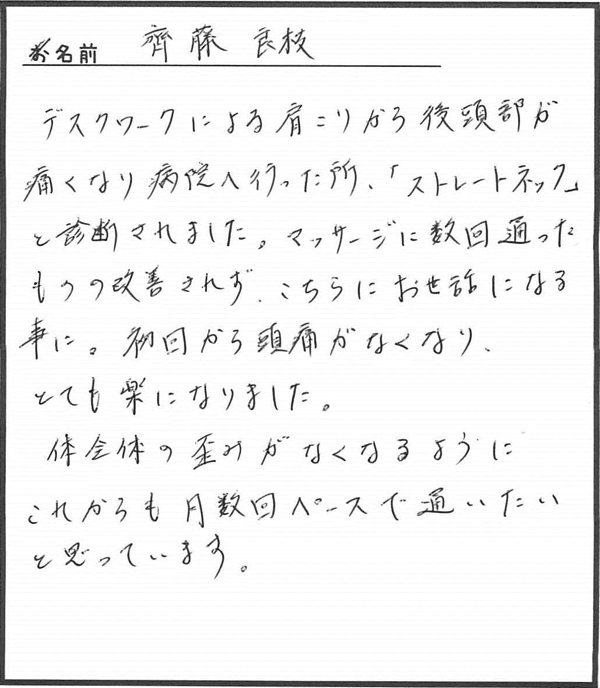 お名前 齊藤 良枝
デスクワークによる肩こりから後頭部が
痛くなり病院へ行った所、「ストレートネック」
と診断されました。マッサージに数回通った
ものの改善されず、こちらにお世話になる
事に。初回から頭痛がなくなり、
とても楽になりました。
体全体の歪みがなくなるように
これからも月数回ペースで通いたい
と思っています。